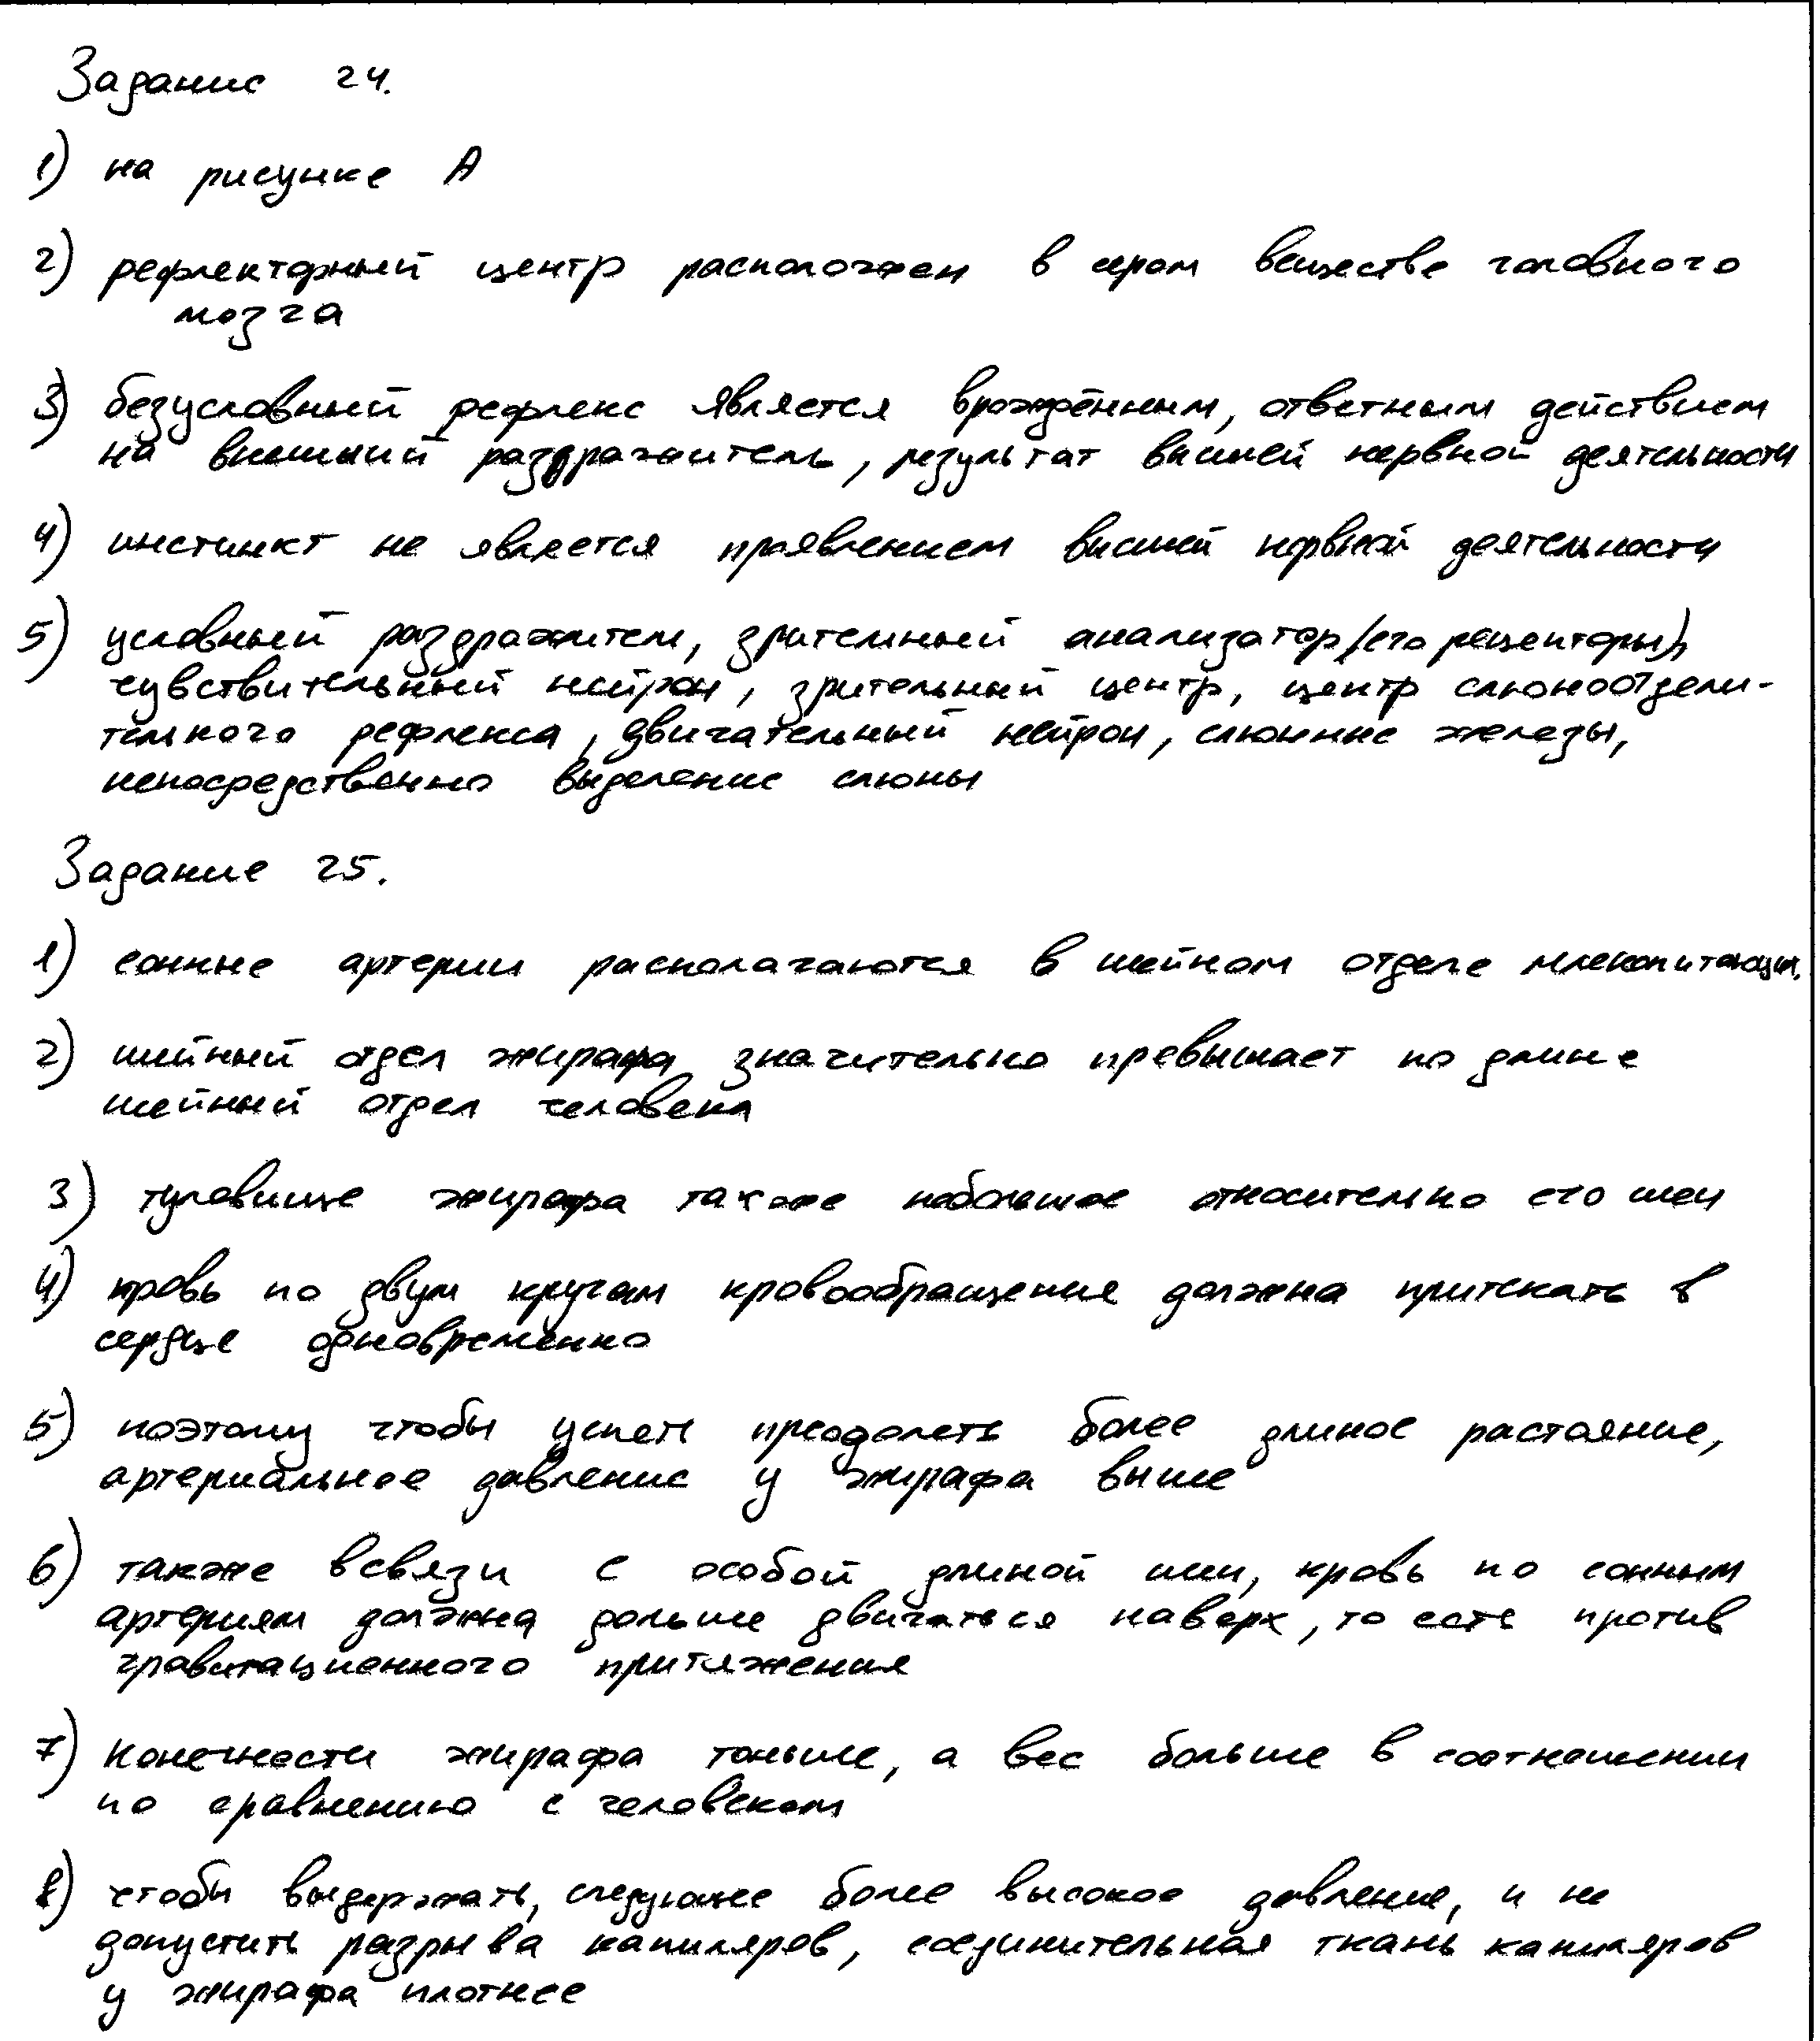 Задание 24.
1) на рисунке А
2) рефлекторный центр расположен в сером веществе головного
мозга
3) безусловный рефлекс является врождённым, ответным действием
на внешний раздражитель, результат высшей нервной деятельности
4) инстинкт не является проявлением высшей нервной деятельности
5) условный раздражитель, зрительный анализатор (его рецепторы),
чувствительный нейрон, зрительный центр, центр слюноотдели-
тельного рефлекса, двигательный нейрон, слюнные железы,
непосредственно выделение слюны
Задание 25.
1) сонные артерии располагаются в шейном отделе млекопитающих.
2) шейный отдел жирафа значительно превышает по длине
шейный отдел человека
3) туловище жирафа также небольшое относительно его шеи
4) кровь по двум кругам кровообращения должна притекать в
сердце одновременно
5) поэтому чтобы успеть преодолеть более длиное растояние,
артериальное давление у жирафа выше
6) также всвязи с особой длиной шеи, кровь по сонным
артериям должна дольше двигаться наверх, то есть против
гравитационного притяжения
7) конечности жирафа тоньше, а вес больше в соотношении
по сравнению с человеком
8) чтобы выдержать, следующее более высокое давление, и не
допустить разрыва капиляров, соединительная ткань капиляров
у жирафа плотнее